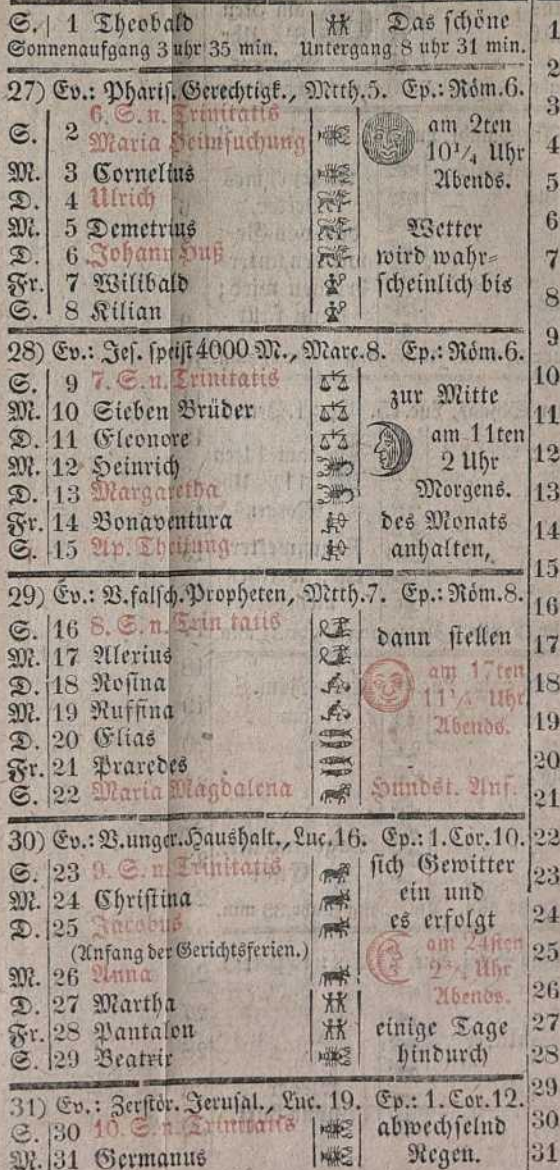 S. 1 Theobald Das schöne
Sonnenaufgang 3 uhr 35 min. Untergang 8 uhr 31 min.
27) Ev.: Pharis. Gerechtigk., Mtth. 5. Ep.: Röm. 6.
6. S. n. Trinitatis
S. 2 Maria Heimsuchung am 2ten
10¼ Uhr
M. 3 Cornelius Abends.
D. 4 Ulrich
M. 5 Demetrius Wetter
D. 6 Johann Huß wird wahr=
Fr. 7 Wilibald scheinlich bis
S. 8 Kilian
28) Ev.: Jes. speist 4000 M., Marc. 8. Ep.: Röm. 6.
S. 9 7. S. n. Trinitatis zur Mitte
M. 10 Sieben Brüder
D. 11 Eleonore am 11ten
M. 12 Heinrich 2 Uhr
D. 13 Margaretha Morgens.
Fr. 14 Bonaventura des Monats
S. 15 Ap. Theilung anhalten,
29) Ev.: V. falsch. Propheten, Mtth. 7. Ep.: Röm. 8.
S. 16 8. S. n. Trin tatis dann stellen
M. 17 Alexius
D. 18 Rosina am 17ten
M. 19 Ruffina 11¼ Uhr
D. 20 Elias Abends.
Fr. 21 Praxedes
S. 22 Maria Magdalena Hundst. Anf.
30) Ev.: V. unger. Haushalt., Luc. 16. Ep.: 1. Cor. 10.
S. 23 9. S. n. Trinitatis sich Gewitter
M. 24 Christina ein und
D. 25 Jacobus es erfolgt
(Anfang der Gerichtsferien.) am 24sten
M. 26 Anna 2¾ Uhr
Abends.
D. 27 Martha
Fr. 28 Pantalon einige Tage
S. 29 Beatrix hindurch
31) Ev.: Zerstör. Jerusal., Luc. 19. Ep.: 1. Cor. 12.
S. 30 10. S. n. Trinitatis abwechselnd
M. 31 Germanus Regen.
1
2
3
4
5
6
7
8
9
10
11
12
13
14
15
16
17
18
19
20
21
22
23
24
25
26
27
28
29
30
31